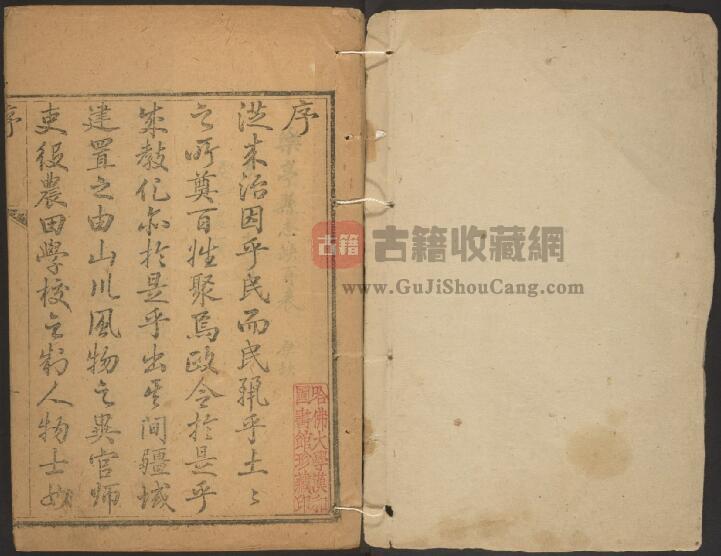 序
從来治因乎民而民乎土〻
之所奠百姓聚焉政令於是乎
成教化亦於是乎出其間疆域
建置之由山川風物之異官師
吏役農田學校之制人物士女
序
哈佛大學漢和
圖書館珍藏印
古籍
古籍收藏網
www.GuJiShouCang.com